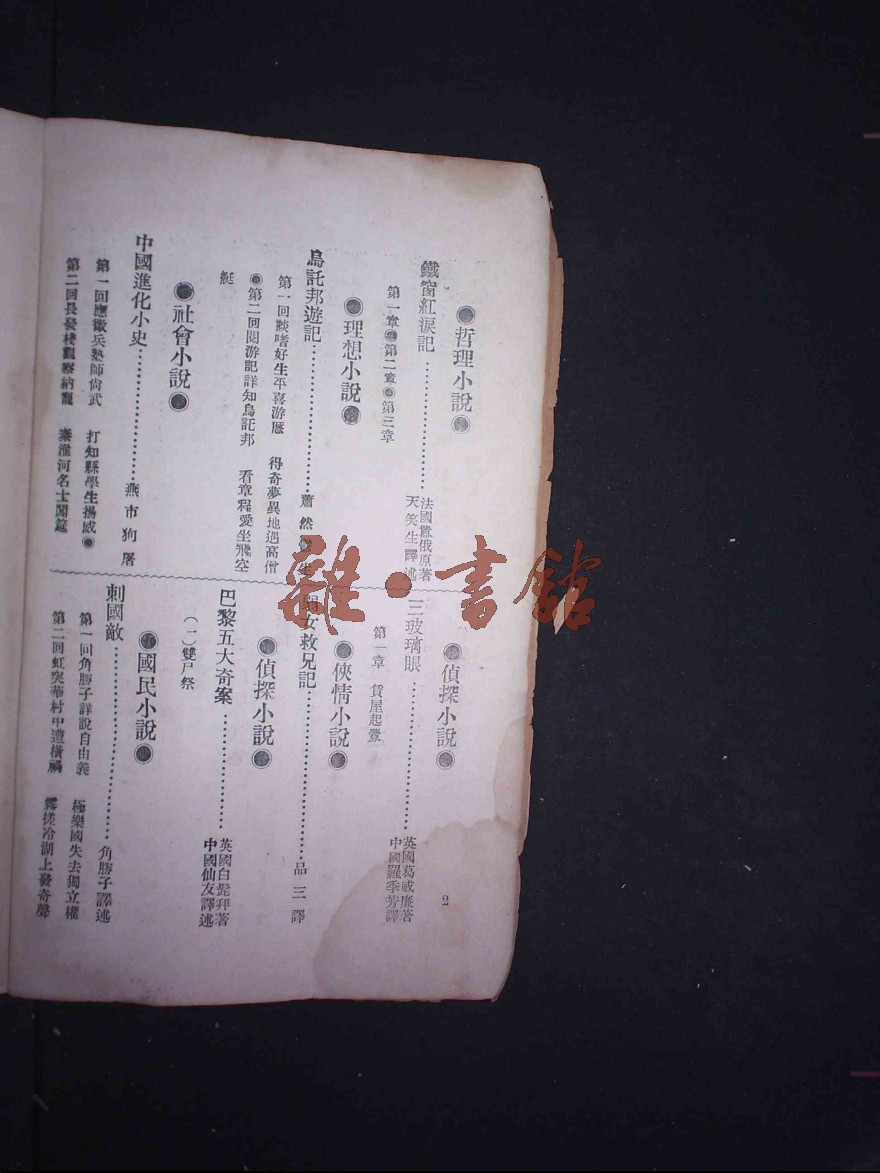 ●哲理小說●
鐵窗紅淚記…………………法國囂俄原著
天笑生譯述
第一章●第二章●第三章
●理想小說●
烏託邦遊記…………………蕭然 生
第一回談嗜好生平喜游歷 得奇夢異地遇高僧
●第二回閱游記詳知烏託邦 看章程愛坐飛空
艇
●社會小說●
中國進化小史…………………燕市狗屠
第一回應徵兵塾師尙武 打知縣學生揚威●
第二回長發棧觀察納寵 秦淮河名士開筵
●偵探小說●
三玻璃眼…………………英國葛威廉著
中國羅季芳譯
第一章 賃屋起釁
●俠情小說●
女救兄記…………………品三譯
●偵探小說●
巴黎五大奇案…………………英國白髭拜著
中國仙友譯述
(一)雙尸祭
●國民小說●
刺國敵…………………角勝子譯述
第一回角勝子詳說自由義 極樂國失去獨立權
第二回虹突華村中遭橫禍 霧搓冷湖上發奇聲
2
雜·書館